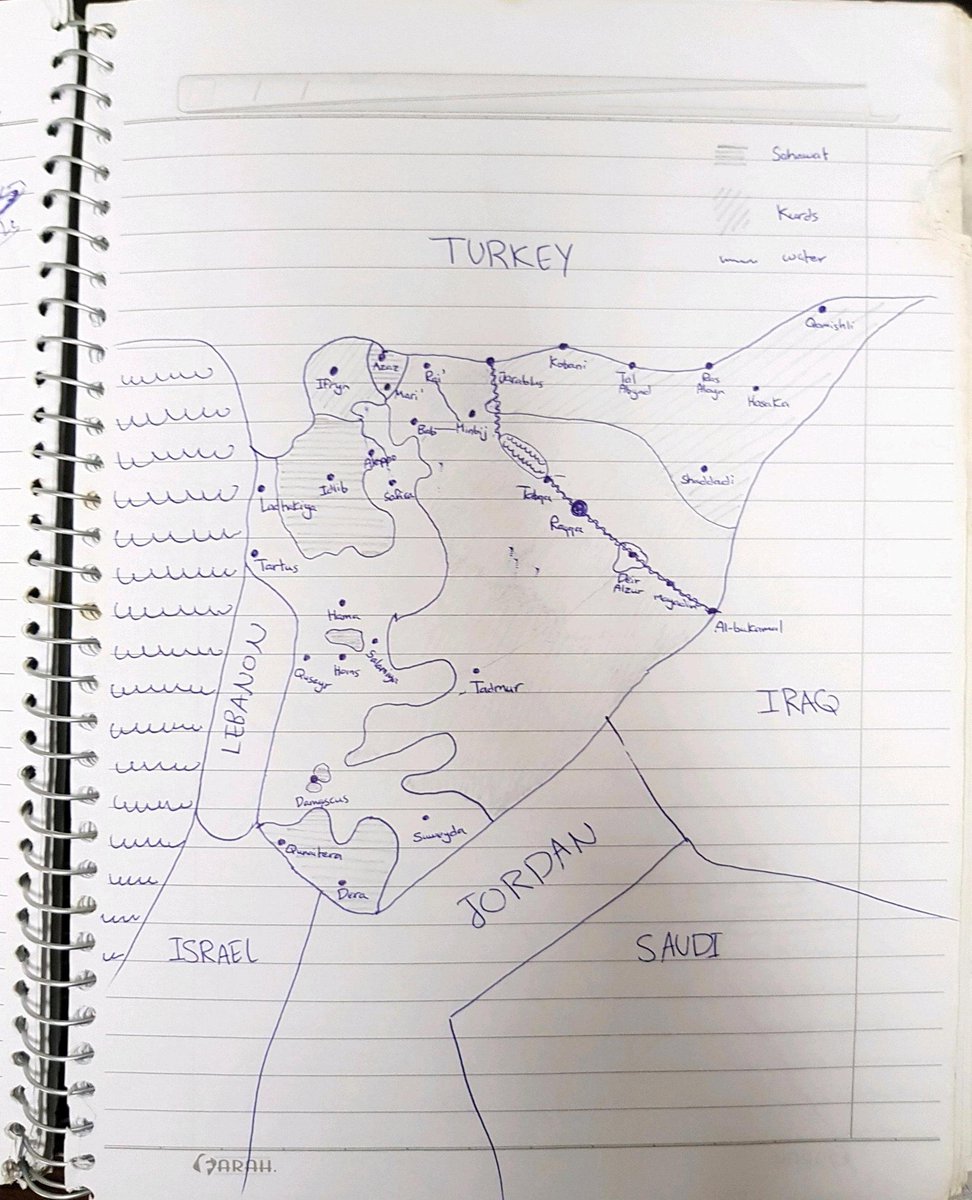 Sahawat
Kurds
water
TURKEY
Qamishli
Kobani
Azaz
Ifryn
Rai'
Jarablus
Tal
Abyad
Ras
Alayn
Hasaka
Mari'
Bab
Minbij
Aleppo
Shaddadi
Idlib
Safira
Ladhakiya
Tabqa
Raqqa
Tartus
Deir
Alzur
mayadin
Hama
Al-bukamal
LEBANON
Qusayr
Homs
Salamiya
Tadmur
IRAQ
Damascus
Suwayda
Qunaitera
Dera
JORDAN
ISRAEL
SAUDI
FARAH.